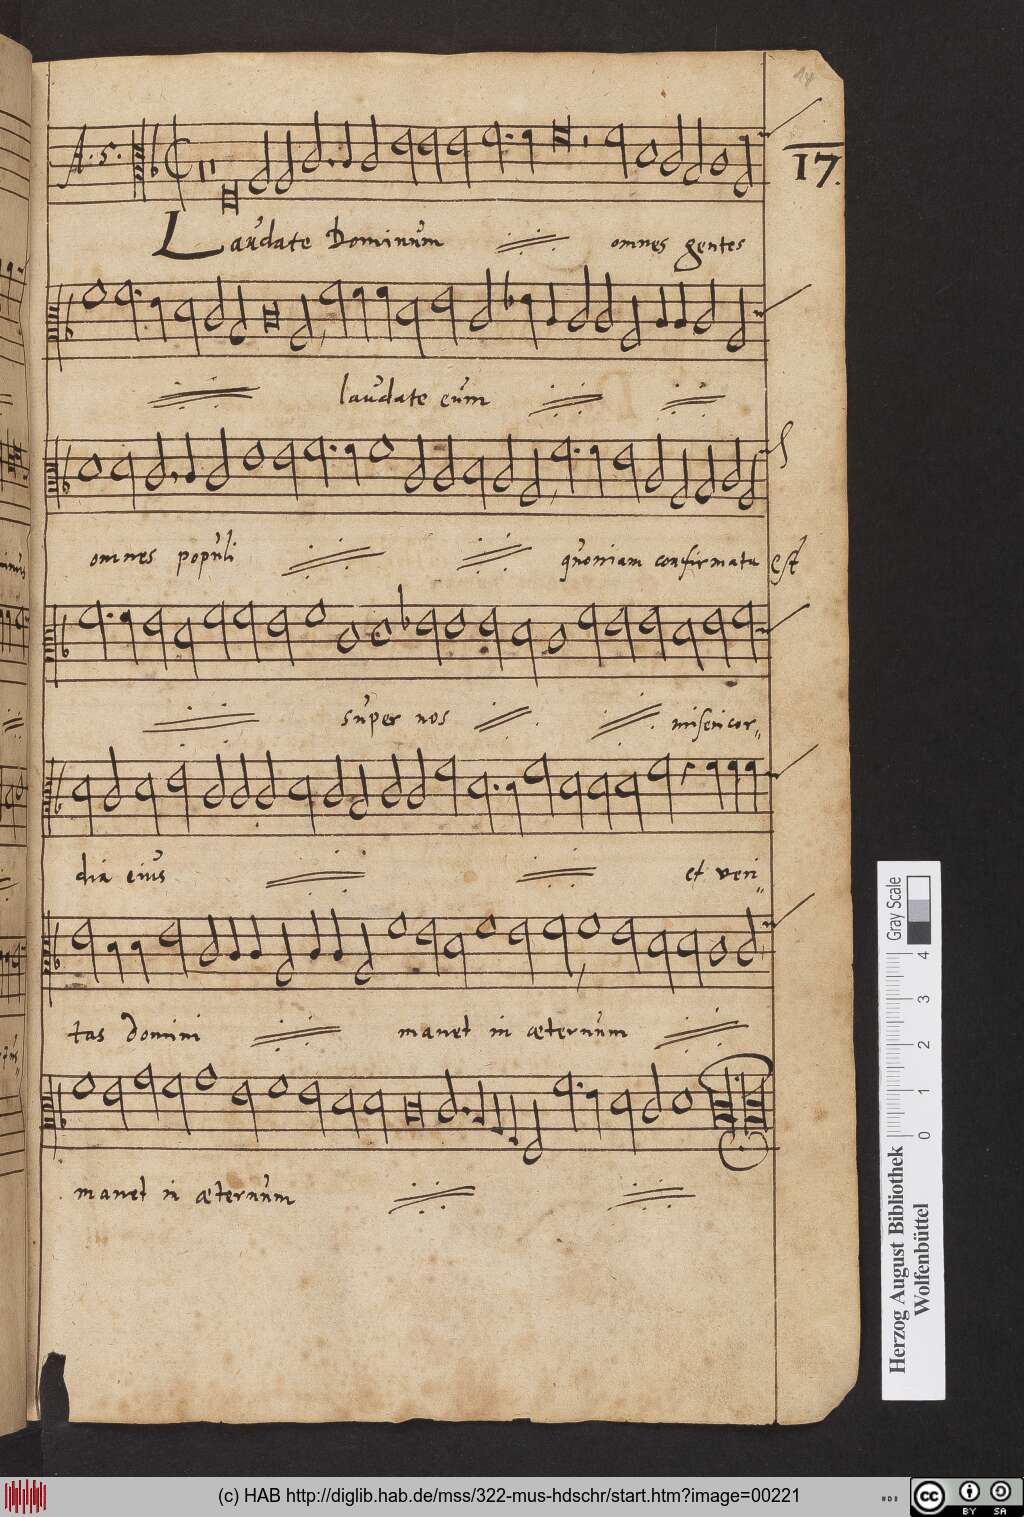 14
A. 5.
17.
Laudate Dominum omnes gentes
laudate eum
omnes populi quoniam confirmata est
super nos misericor„
dia eius et veri„
tas domini manet in æternum
manet in æternum
Gray Scale
0 1 2 3 4
Herzog August Bibliothek
Wolfenbüttel
(c) HAB http://diglib.hab.de/mss/322-mus-hdschr/start.htm?image=00221
cc BY SA